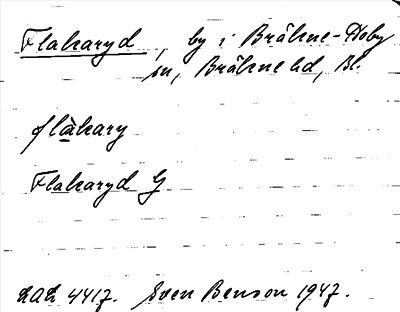 Flakaryd, by i Bräkne-Hoby
sn, Bräkne hd, Bl.
flàkary
Flakaryd G
LAL 4417. Sven Benson 1947.